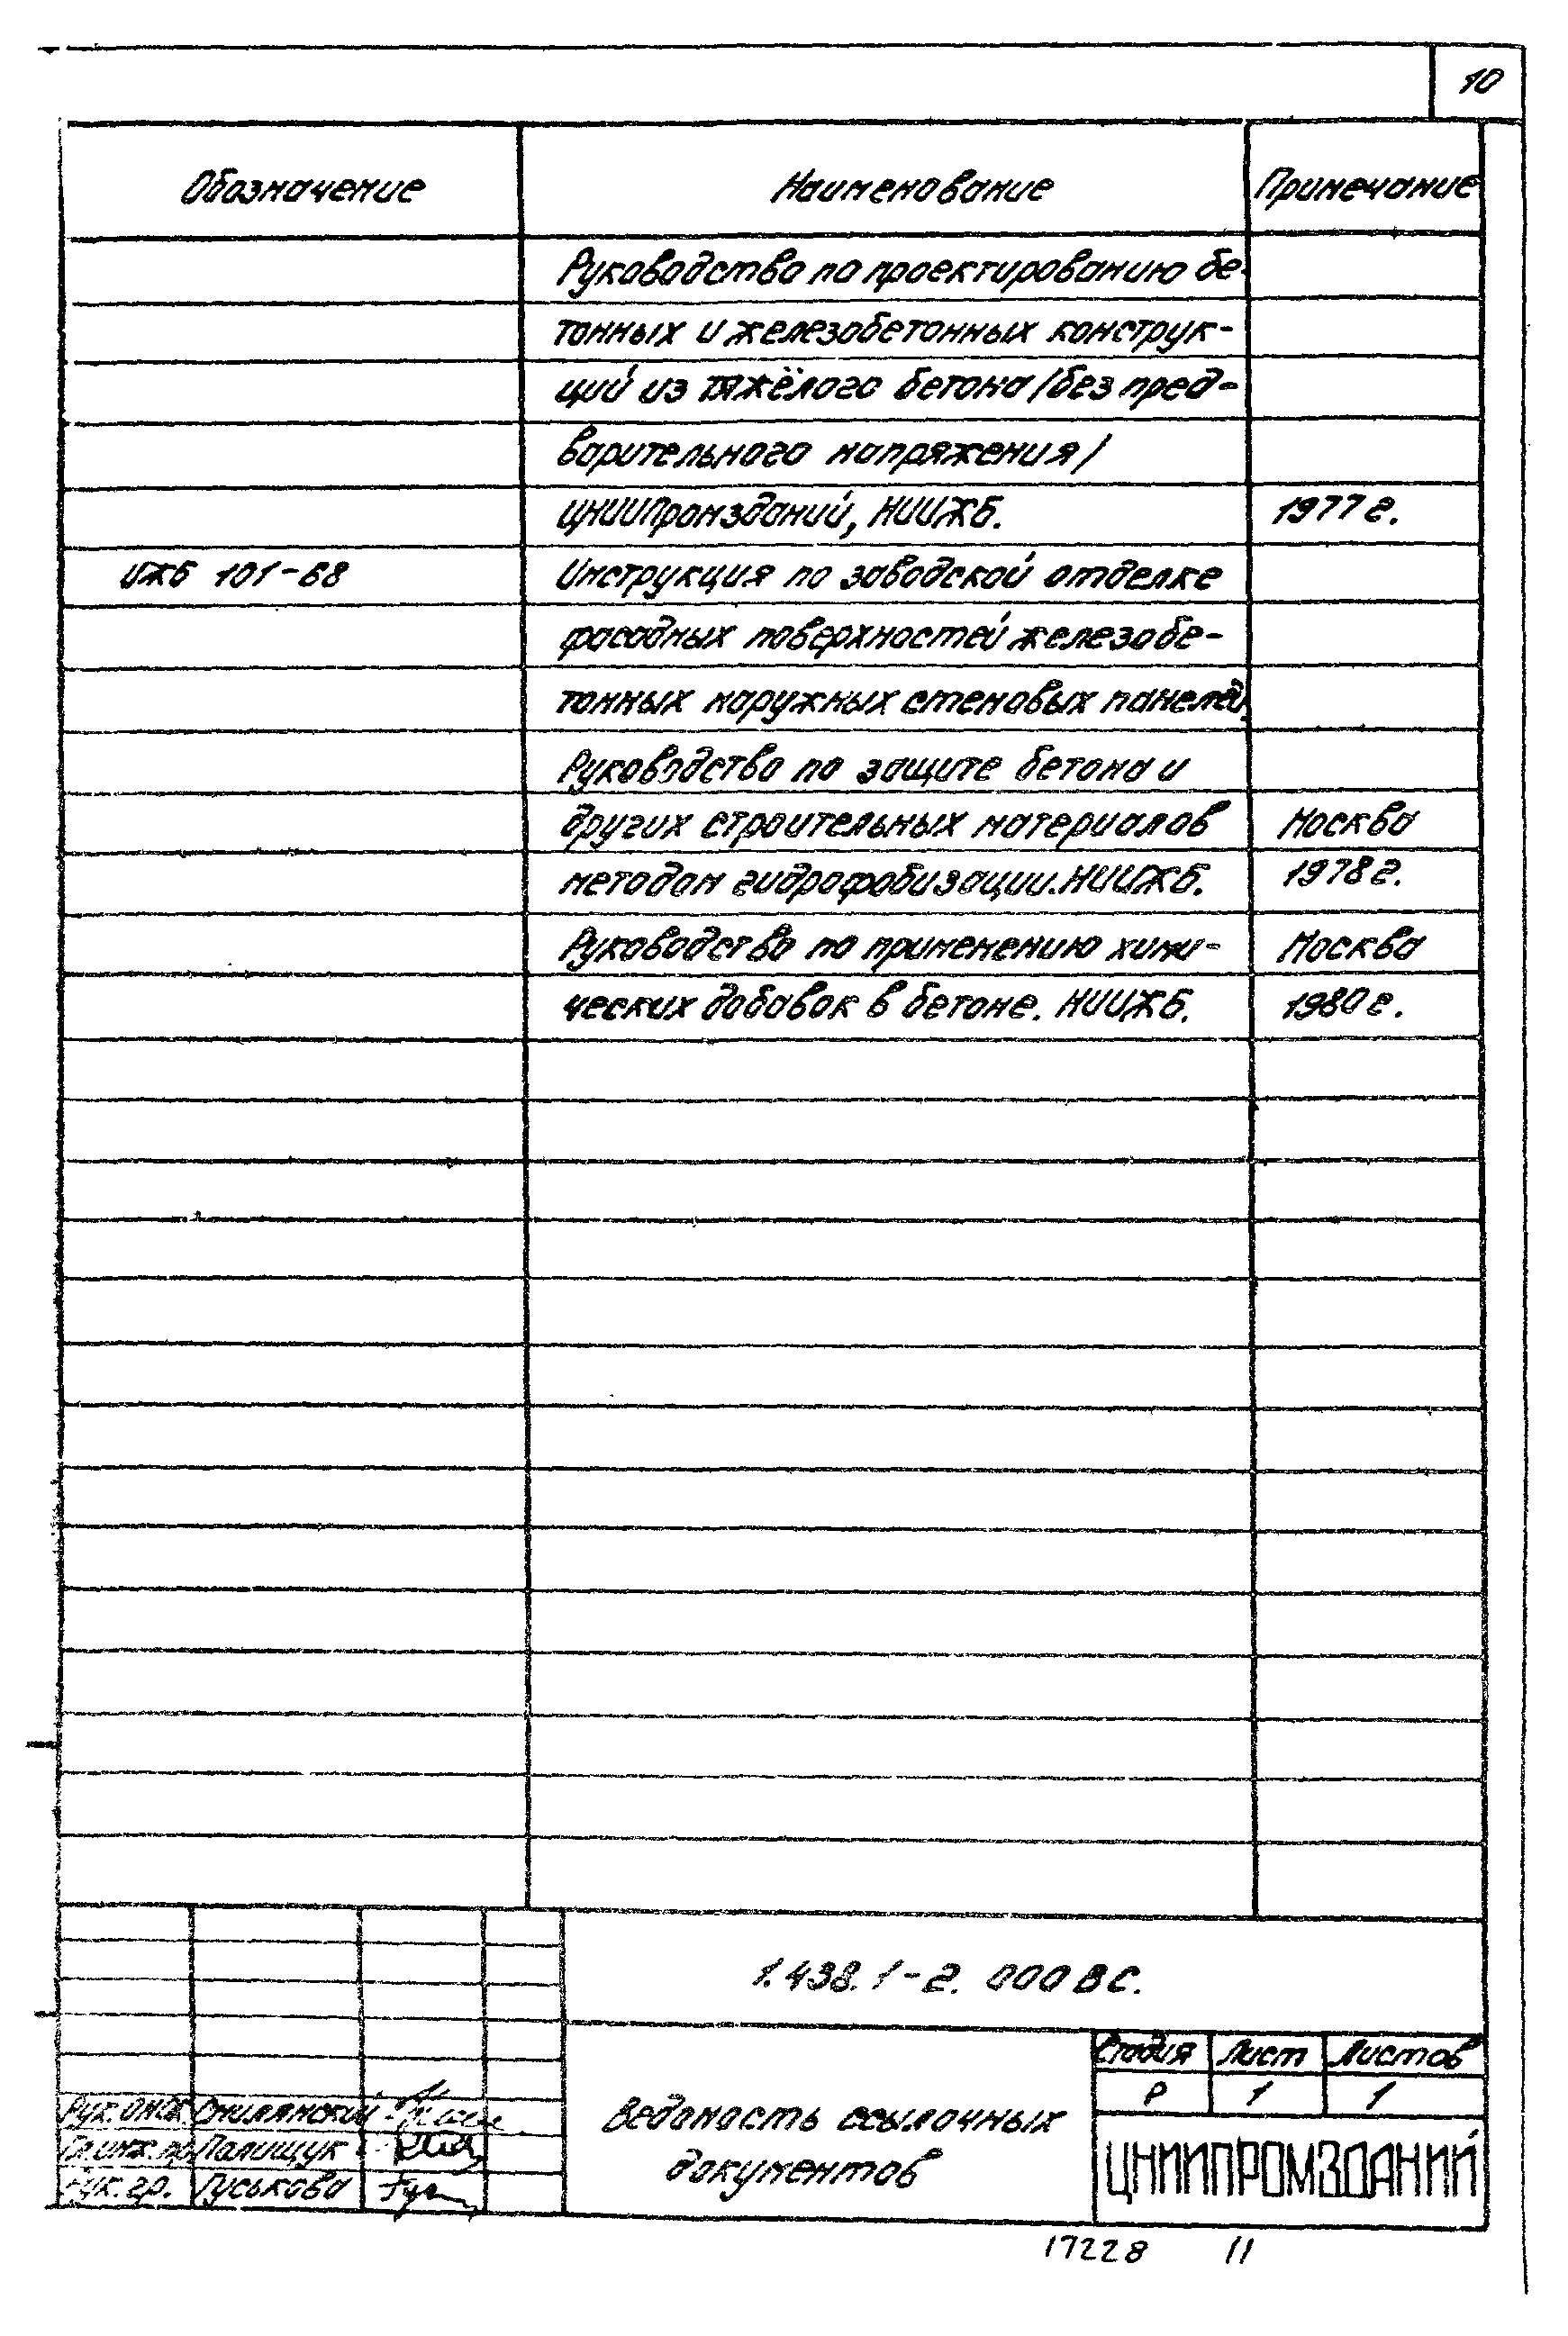 10
Обозначение Наименование Примечание
Руководство по проектированию бе-
тонных и железобетонных конструк-
ций из тяжёлого бетона /без пред-
варительного напряжения/
ЦНИИПромзданий, НИИЖБ. 1977г.
ИЖБ 101-68 Инструкция по заводской отделке
фасадных поверхностей железобе-
тонных наружных стеновых панелей.
Руководство по защите бетона и
других строительных материалов Москва
методом гидрофобизации. НИИЖБ. 1978г.
Руководство по применению хими- Москва
ческих добавок в бетоне. НИИЖБ. 1980г.
1.438.1-2. 000 ВС.
Стадия Лист Листов
Р 1 1
Ведомость ссылочных
документов
ЦНИИПРОМЗДАНИЙ
Рук. Смилянский
Гл. инж. пр. Полищук
Рук. гр. Гуськова
17228 11